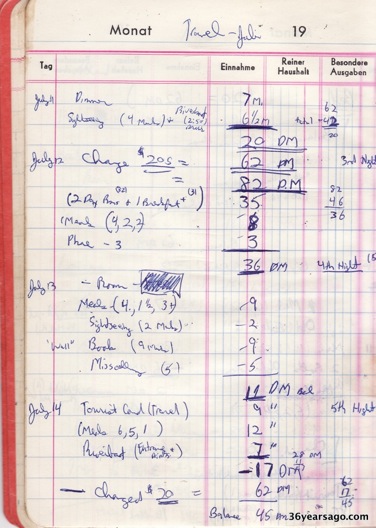 Monat Travel - Juli 19
Tag Einnahme Reiner Haushalt Besondere Ausgaben
July 11 Dinner 7 M. 62
Sightseeing (4 Marks) + 6½ m - 42
20 DM 20
July 12 Change $20 = 62 DM 3rd Night
82 DM 82
+ 1 Breakfast + 35 46
Meals (4, 2, 2) 8 36
Phone - 3 3
36 DM 4th Night
July 13 - Room -
Meals (4, 1½, 3½) -9
Sightseeing (2 Marks) -2
"Wall" Book (9 Marks) -9
(5) -5
11 DM
July 14 Tourist Card (Travel) 9 " 5th Night
(Meals 6, 5, 1) 12 "
7 " 28 DM
-17 DM 62
- Changed $20 = 62 DM 17
Balance 45 DM 45
36yearsago.com